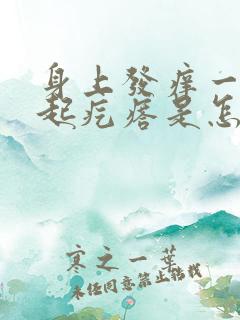 身上發痒一
起疙瘩是怎
寒之一葉
未经同意禁止搭载